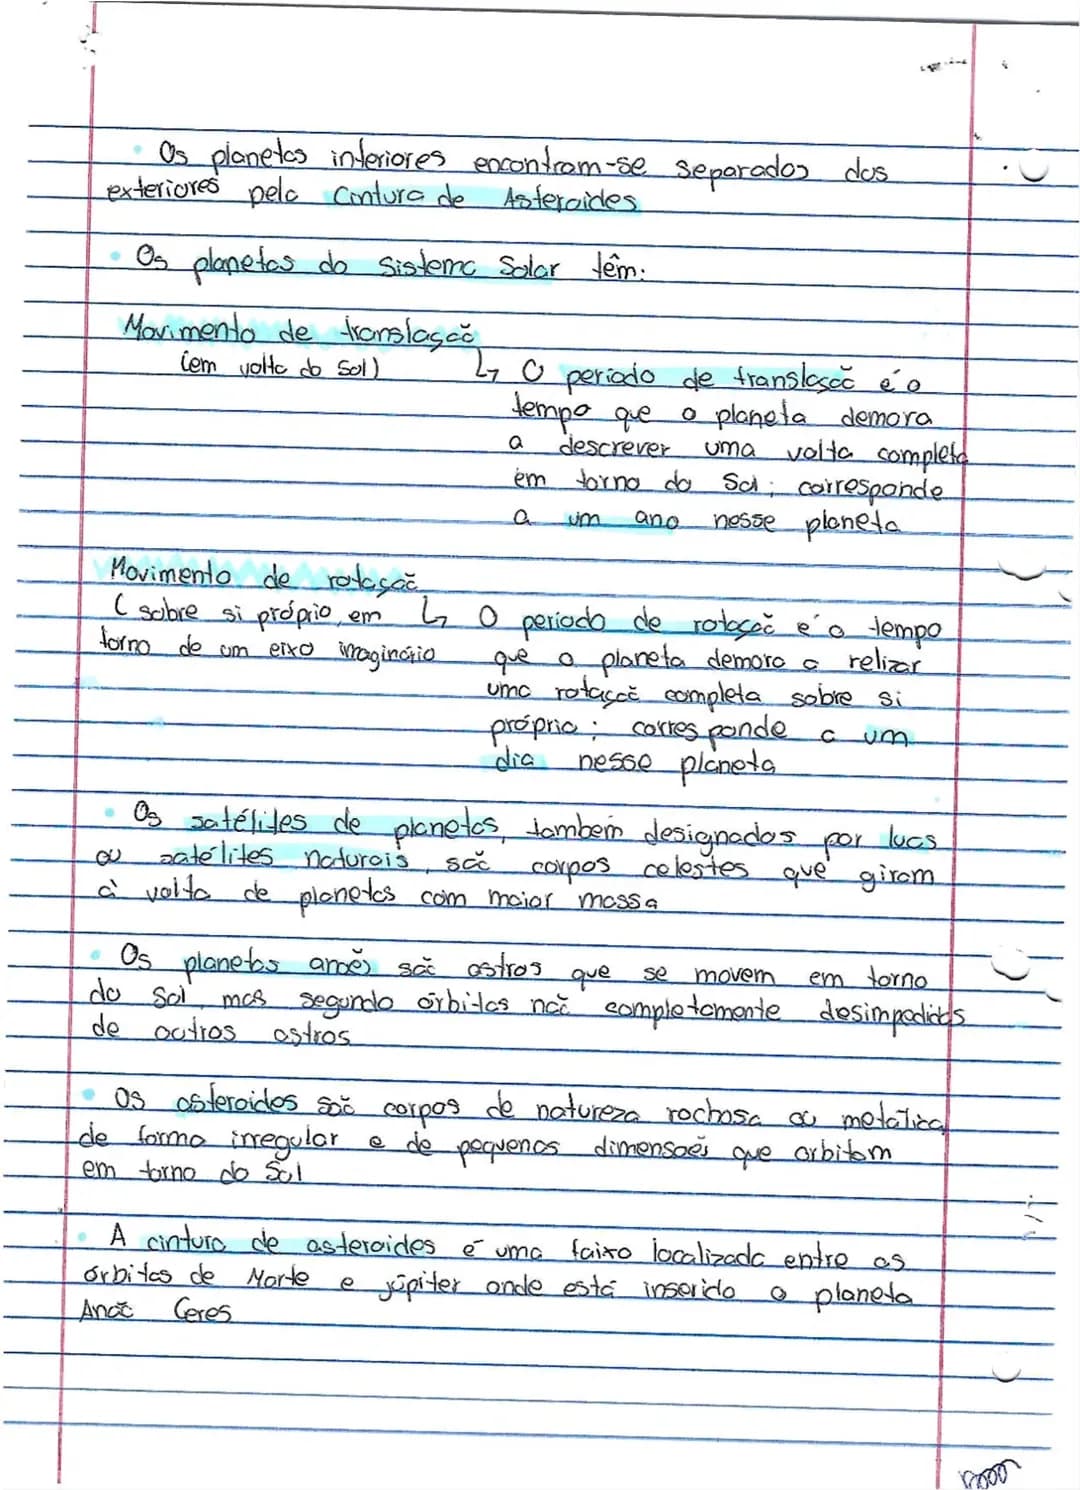 • Os planetas interiores encontram-se separados dos
exteriores pela Cintura de Asteroides
• Os planetas do Sistema Solar têm:
Movimento de translação
(em volta do Sol)
↳ O período de translação é o
tempo que o planeta demora
a descrever uma volta completa
em torno do Sol; corresponde
a um ano nesse planeta
Movimento de rotação
(sobre si próprio, em
torno de um eixo imaginário
↳ O período de rotação é o tempo
que o planeta demora a relizar
uma rotação completa sobre si
próprio; corresponde a um
dia nesse planeta
• Os satélites de planetas, também designados por luas
ou satélites naturais, são corpos celestes que giram
à volta de planetas com maior massa
• Os planetas anões são astros que se movem em torno
do Sol, mas segundo órbitas não completamente desimpedidas
de outros astros
• Os asteroides são corpos de natureza rochosa ou metálica,
de forma irregular e de pequenas dimensões que orbitam
em torno do Sol
• A cintura de asteroides é uma faixa localizada entre as
órbitas de Marte e júpiter onde está inserido o planeta
Anão Ceres